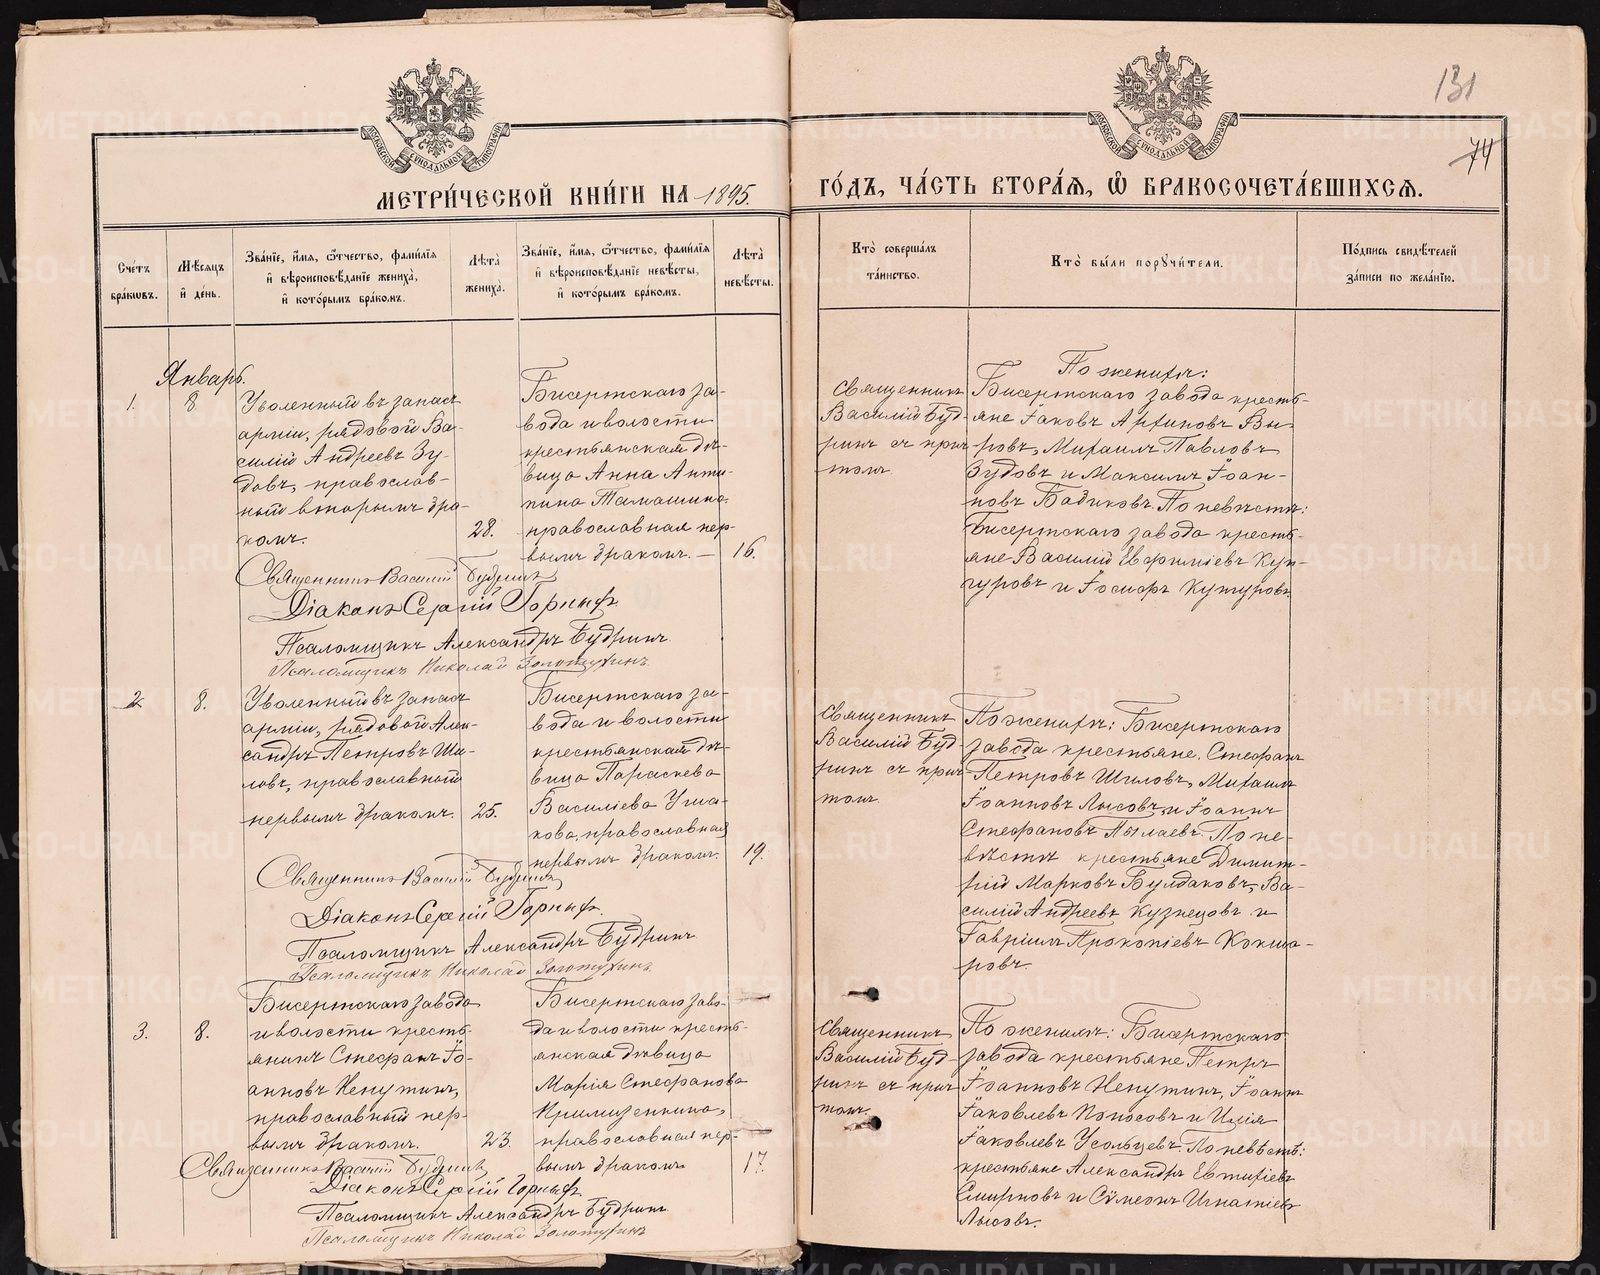 131
74
МЕТРИ́ЧЕСКОЙ КНИ́ГИ НА 1895.
ГО́ДЪ, ЧА́СТЬ ВТОРА́Я, Ѡ БРАКОСОЧЕТА́ВШИХСЯ.
Сче́тъ бра́кѡвъ.
Мѣ́сяцъ и҆ де́нь.
Зва́нїе, и҆́мя, ѻ҆́тчество, фами́лїя
и҆ вѣроисповѣ́данїе жениха̀,
и҆ кото́рымъ бра́комъ.
Лѣ́та жениха̀.
Зва́нїе, и҆́мя, ѻ҆́тчество, фами́лїя
и҆ вѣроисповѣ́данїе невѣ́сты,
и҆ кото́рымъ бра́комъ.
Лѣ́та невѣ́сты.
Кто̀ соверша́лъ
та́инство.
Кто̀ бы́ли порꙋчи́тели.
По́дпись свидѣ́телей
за́писи по жела́нїю.
Январь.
1.
8
Уволенный въ запасъ
арміи, рядовой Ва-
силій Андреевъ Зу-
довъ, православ-
ный вторымъ бра-
комъ.
28.
Бисертскаго за-
вода и волости
крестьянская дѣ-
вица Анна Анти-
пина
православная пер-
вымъ бракомъ. —
16.
Священникъ
Василій Буд-
ринъ съ прич-
томъ.
По женихѣ:
Бисертскаго завода кресть-
яне Іаковъ Вы-
ровъ, Михаилъ Павловъ
Зудовъ и Максимъ Іоан-
новъ Бадиковъ. По невѣстѣ:
Бисертскаго завода кресть-
яне Василій Евфиміевъ Кун-
гуровъ и Іосифъ Кунгуровъ
Священникъ Василій Будринъ
Діаконъ Сергій Горныхъ
Псаломщикъ Александръ Будринъ
Псаломщикъ Николай Золотухинъ.
2
8.
Уволенный въ запасъ
арміи, рядовой Алек-
сандръ Петровъ Ши-
ловъ, православный
первымъ бракомъ.
25.
Бисертскаго за-
вода и волости
крестьянская дѣ-
вица Параскева
Василіева Уша-
кова, православная
первымъ бракомъ.
19.
Священникъ
Василій Буд-
ринъ съ прич-
томъ
По женихѣ: Бисертскаго
завода крестьяне. Стефанъ
Петровъ Шиловъ, Михаилъ
Іоанновъ Лысовъ и Іоаннъ
Стефановъ Пылаевъ. По не-
вѣстѣ крестьяне Димит-
рій Марковъ Булдаковъ, Ва-
силій Андреевъ Кузнецовъ и
Гавріилъ Прокопіевъ Кокша-
ровъ.
Священникъ Василій Будринъ
Діаконъ Сергій Горныхъ.
Псаломщикъ Александръ Будринъ
Псаломщикъ Николай Золотухинъ.
3.
8.
Бисертскаго завода
и волости кресть-
янинъ Стефанъ Іо-
анновъ Непутинъ,
православный пер-
вымъ бракомъ.
23.
Бисертскаго заво-
да и волости кресть-
янская дѣвица
Марія Стефанова
православная пер-
вымъ бракомъ
17.
Священникъ
Василій Буд-
ринъ съ прич-
томъ.
По женихѣ: Бисертскаго
завода крестьяне Петръ
Іоанновъ Непутинъ, Іоаннъ
Іаковлевъ Поносовъ и Илія
Іаковлевъ Усольцевъ. По невѣстѣ:
крестьяне Александръ Евтихіевъ
Смирновъ и Сѵмеонъ Игнатіевъ
Лысовъ.
Священникъ Василій Будринъ
Діаконъ Сергій Горныхъ
Псаломщикъ Александръ Будринъ
Псаломщикъ Николай Золотухинъ
METRIKI.GASO-URAL.RU